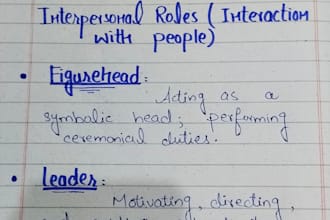 Interpersonal Roles (Interaction
with people)
• Figurehead:
Acting as a
symbolic head; performing
ceremonial duties.
• Leader:
Motivating, directing,